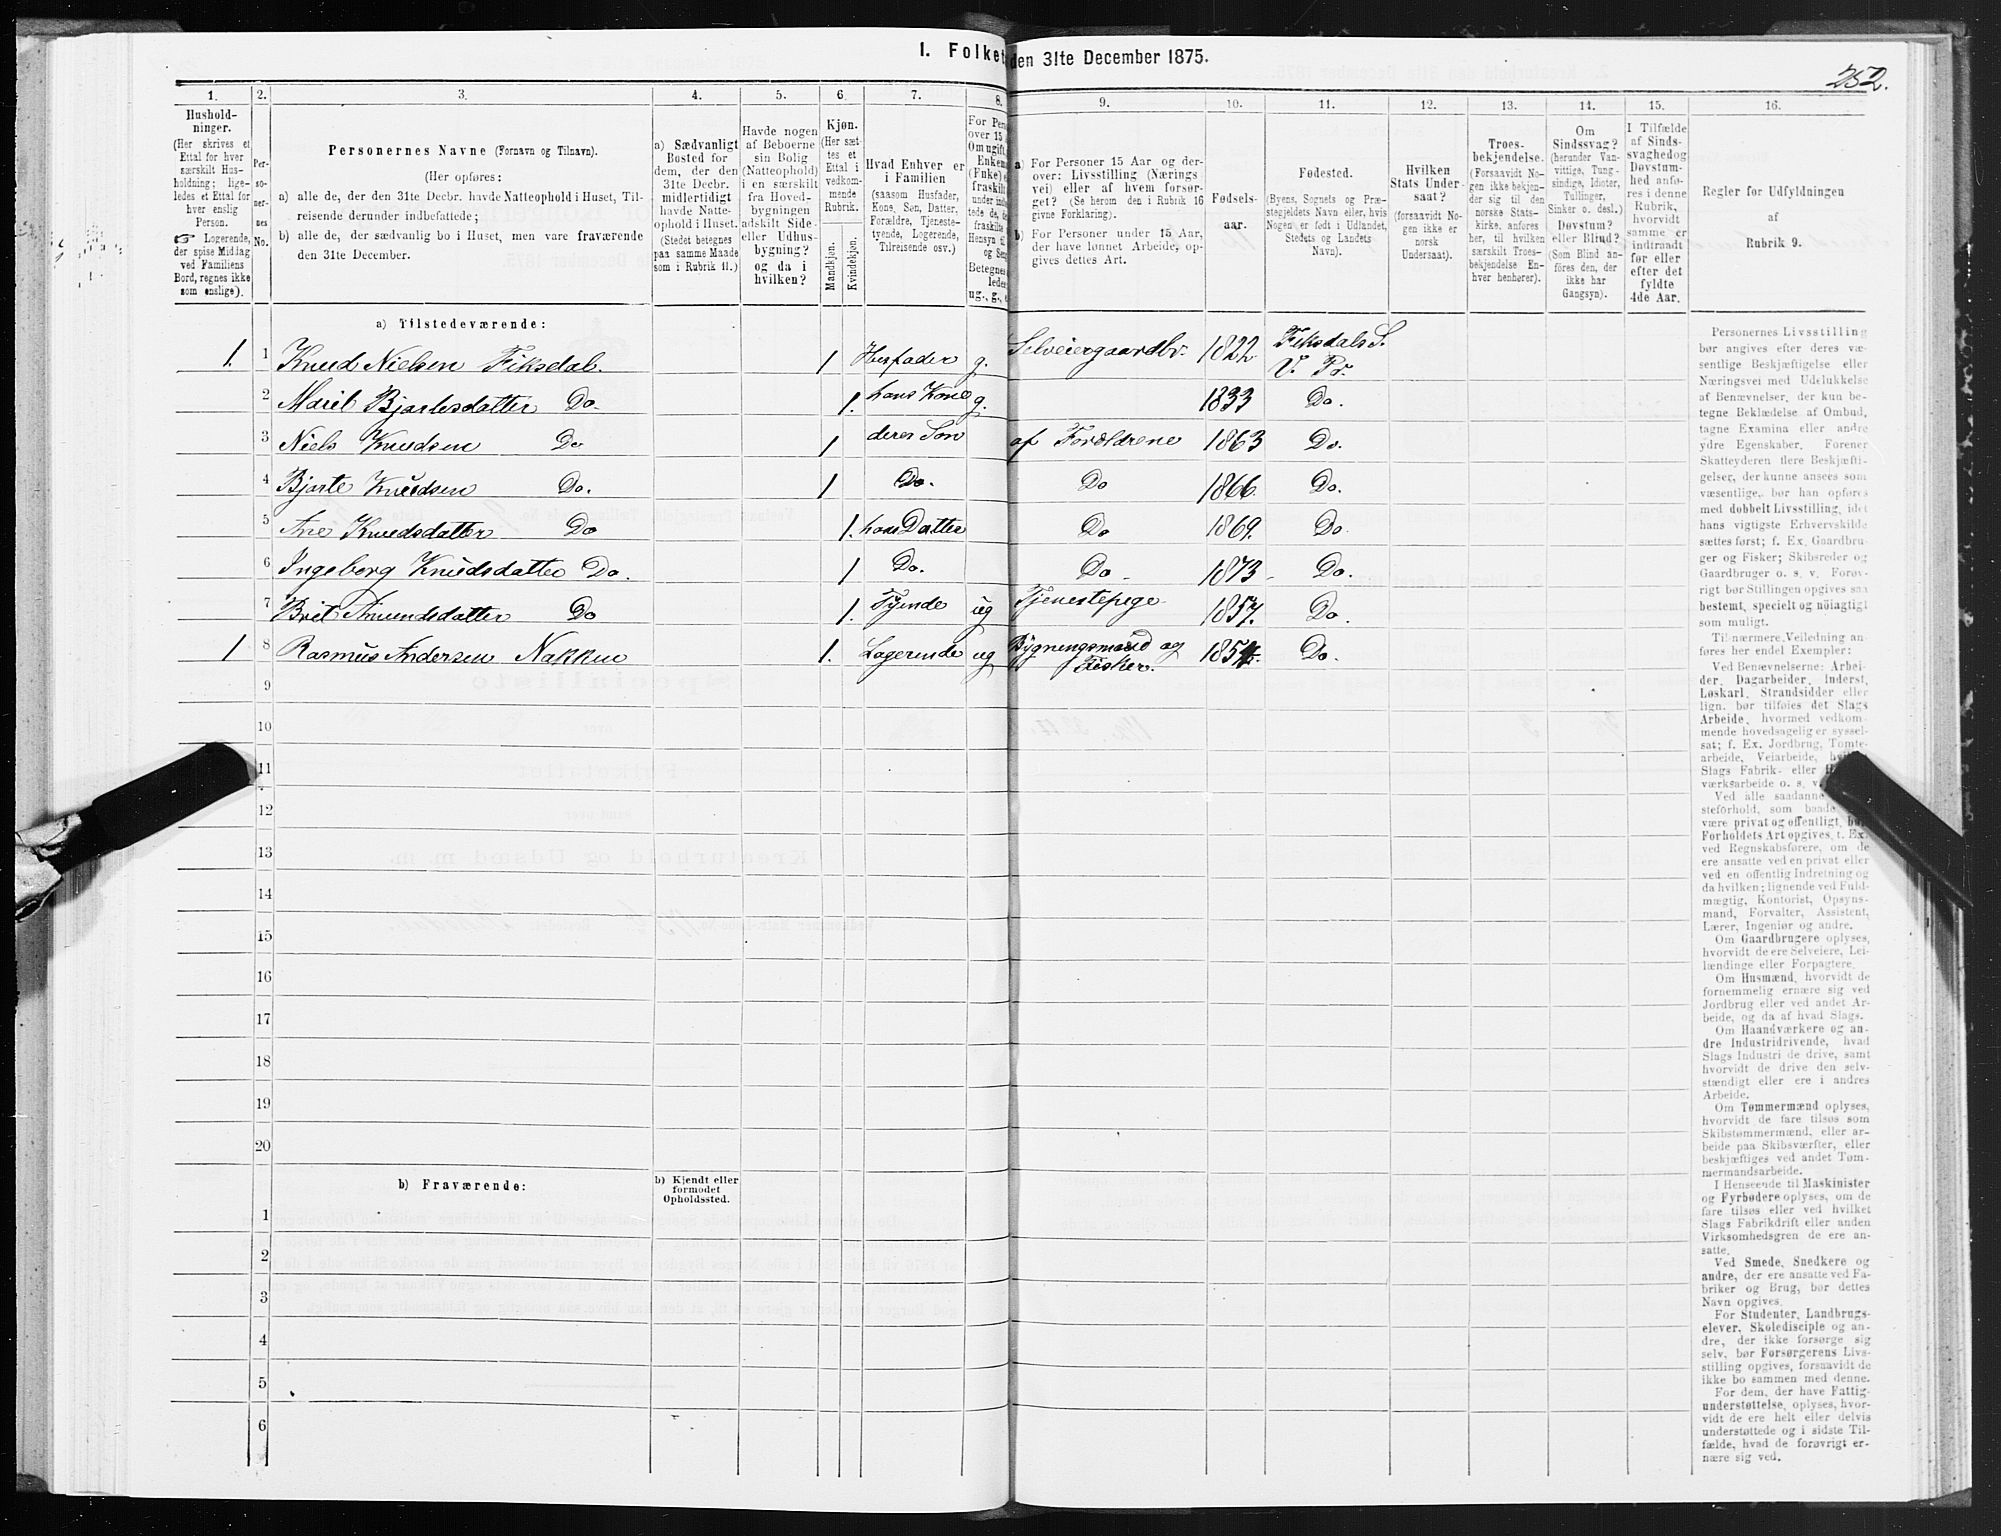 1. Folket
den 31te December 1875.
252.
1.
2.
3.
4.
5.
6.
7.
8.
9.
10.
11.
12.
13.
14.
15.
16.
Hushold-
ninger.
(Her skrives et
Ettal for hver
særskilt Hus-
holdning; lige-
ledes et Ettal for
hver enslig
Person.
☞ Logerende,
der spise Middag
ved Familiens
Bord, regnes ikke
som enslige).
Per-
so-
ner-
nes
No.
Personernes Navne (Fornavn og Tilnavn).
(Her opføres:
a) alle de, der den 31te Decbr. havde Natteophold i Huset, Til-
reisende derunder indbefattede;
b) alle de, der sædvanlig bo i Huset, men vare fraværende
den 31te December.
a) Sædvanligt
Bosted for
dem, der den
31te Decbr.
midlertidigt
havde Natte-
ophold i Huset.
(Stedet betegnes
paa samme Maade
som i Rubrik 11.)
Havde nogen
af Beboerne
sin Bolig
(Natteophold)
i en særskilt
fra Hoved-
bygningen
adskilt Side-
eller Udhus-
bygning?
og da i
hvilken?
Kjøn.
(Her sæt-
tes et
Ettal i
vedkom-
mende
Rubrik.
Mandkjøn.
Kvindekjøn.
Hvad Enhver er
i Familien
(saasom Husfader,
Kone, Søn, Datter,
Forældre, Tjeneste-
tyende, Logerende,
Tilreisende osv.)
For Pers
over 15 A
Om ugift,
Enkem
(Fnke) e
fraskilt
under ind
tede de, d
fraskilte
Hensyn til
og Sen
Betegnes
ledes
ug., g., e
a) For Personer 15 Aar og der-
over: Livsstilling (Nærings-
vei) eller af hvem forsør-
get? (Se herom den i Rubrik 16
givne Forklaring).
b) For Personer under 15 Aar,
der have lønnet Arbeide, op-
gives dettes Art.
Fødsels-
aar.
Fødested.
(Byens, Sognets og Præ-
stegjeldets Navn eller, hvis
Nogen er født i Udlandet,
Stedets og Landets
Navn).
Hvilken
Stats Under-
saat?
(forsaavidt No-
gen ikke er
norsk
Undersaat).
Troes-
bekjendelse.
(Forsaavidt No-
gen ikke bekjen-
der sig til den
norske Stats-
kirke, anføres
her, til hvilken
særskilt Troes-
bekjendelse En-
hver henhører).
Om
Sindssvag?
(herunder Van-
vittige, Tung-
sindige, Idioter,
Tullinger,
Sinker o. desl.)
Døvstum?
eller Blind?
(Som Blind an-
føres den, der
ikke har
Gangsyn).
I Tilfælde
af Sinds-
svaghed og
Døvstum-
hed anfø-
res i denne
Rubrik,
hvorvidt
samme er
indtraadt
før eller
efter det
fyldte
4de Aar.
Regler for Udfyldningen
af
Rubrik 9.
a) Tilstedeværende:
1. 1 Knud Nielsen Fiksdal. 1 Husfader g. Selveiergaardbr. 1822 Fiksdals S.
V. Pr.
2 Marit Bjartesdatter Do. 1. hans Kone g. 1833 Do.
3 Niels Knudsen Do 1 deres Søn af Forældrene 1863 Do.
4 Bjarte Knudsen Do. 1 Do. Do 1866 Do.
5 Ane Knudsdatter Do 1. hans Datter Do 1869. Do.
6 Ingeborg Knudsdatter Do. 1 Do. Do 1873 Do.
7 Brit Amundsdatter Do 1. Tyende ug Tjenestepige 1857. Do.
1 8 Rasmus Andersen Nakken 1. Logerende ug Bygningsmand og 1854. Do.
Fisker.
9
10
11
12
13
14
15
16
17
18
19
20
b) Fraværende:
b) Kjendt eller
formodet
Opholdssted.
1
2
3
4
5
6
Personernes Livsstilling
bør angives efter deres væ-
sentlige Beskjæftigelse eller
Næringsvei med Udelukkelse
af Benævnelser, der kun be-
tegne Beklædelse af Ombud,
tagne Examina eller andre
ydre Egenskaber. Forener
Skatteyderen flere Beskjæfti-
gelser, der kunne ansees som
væsentlige, bør han opføres
med dobbelt Livsstilling, idet
hans vigtigste Erhvervskilde
sættes først; f. Ex. Gaardbru-
ger og Fisker; Skibsreder og
Gaardbruger o. s. v. Forøv-
rigt bør Stillingen opgives saa
bestemt, specielt og nøiagtigt
som muligt.
Til nærmere Veiledning an-
føres her endel Exempler:
Ved Benævnelserne: Arbei-
der, Dagarbeider, Inderst,
Løskarl, Strandsidder eller
lign. bør tilføies det Slags
Arbeide, hvormed vedkom-
mende hovedsagelig er syssel-
sat; f. Ex. Jordbrug, Tomte-
arbeide, Veiarbeide,
Slags Fabrik- eller
værksarbeide o. s. v.
Ved alle saadanne
steforhold, som baade
være privat og offentligt, bør
Forholdets Art opgives, t. Ex.
ved Regnskabsførere, om de
ere ansatte ved en privat eller
ved en offentlig Indretning og
da hvilken; lignende ved Fuld-
mægtig, Kontorist, Opsyns-
mand, Forvalter, Assistent,
Lærer, Ingeniør og andre.
Om Gaardbrugere oplyses,
hvorvidt de ere Selveiere, Lei-
lændinge eller Forpagtere.
Om Husmænd, hvorvidt de
fornemmelig ernære sig ved
Jordbrug eller ved andet Ar-
beide, og da af hvad Slags.
Om Haandværkere og an-
dre Industridrivende, hvad
Slags Industri de drive, samt
hvorvidt de drive den selv-
stændigt eller ere i andres
Arbeide.
Om Tømmermænd oplyses,
hvorvidt de fare tilsøs som
Skibstømmermænd, eller ar-
beide paa Skibsværfter, eller
beskjæftiges ved andet Tøm-
mermandsarbeide.
I Henseende til Maskinister
og Fyrbødere oplyses, om de
fare tilsøs eller ved hvilket
Slags Fabrikdrift eller anden
Virksomhedsgren de ere an-
satte.
Ved Smede, Snedkere og
andre, der ere ansatte ved Fa-
briker og Brug, bør dettes
Navn opgives.
For Studenter, Landbrugs-
elever, Skoledisciple og an-
dre, der ikke forsørge sig
selv, bør Forsørgerens Livs-
stilling opgives, forsaavidt de
ikke bo sammen med denne.
For dem, der have Fattig-
understøttelse, oplyses, hvor-
vidt de ere helt eller delvis
understøttede og i sidste Til-
fælde, hvad de forøvrigt er-
nære sig ved.